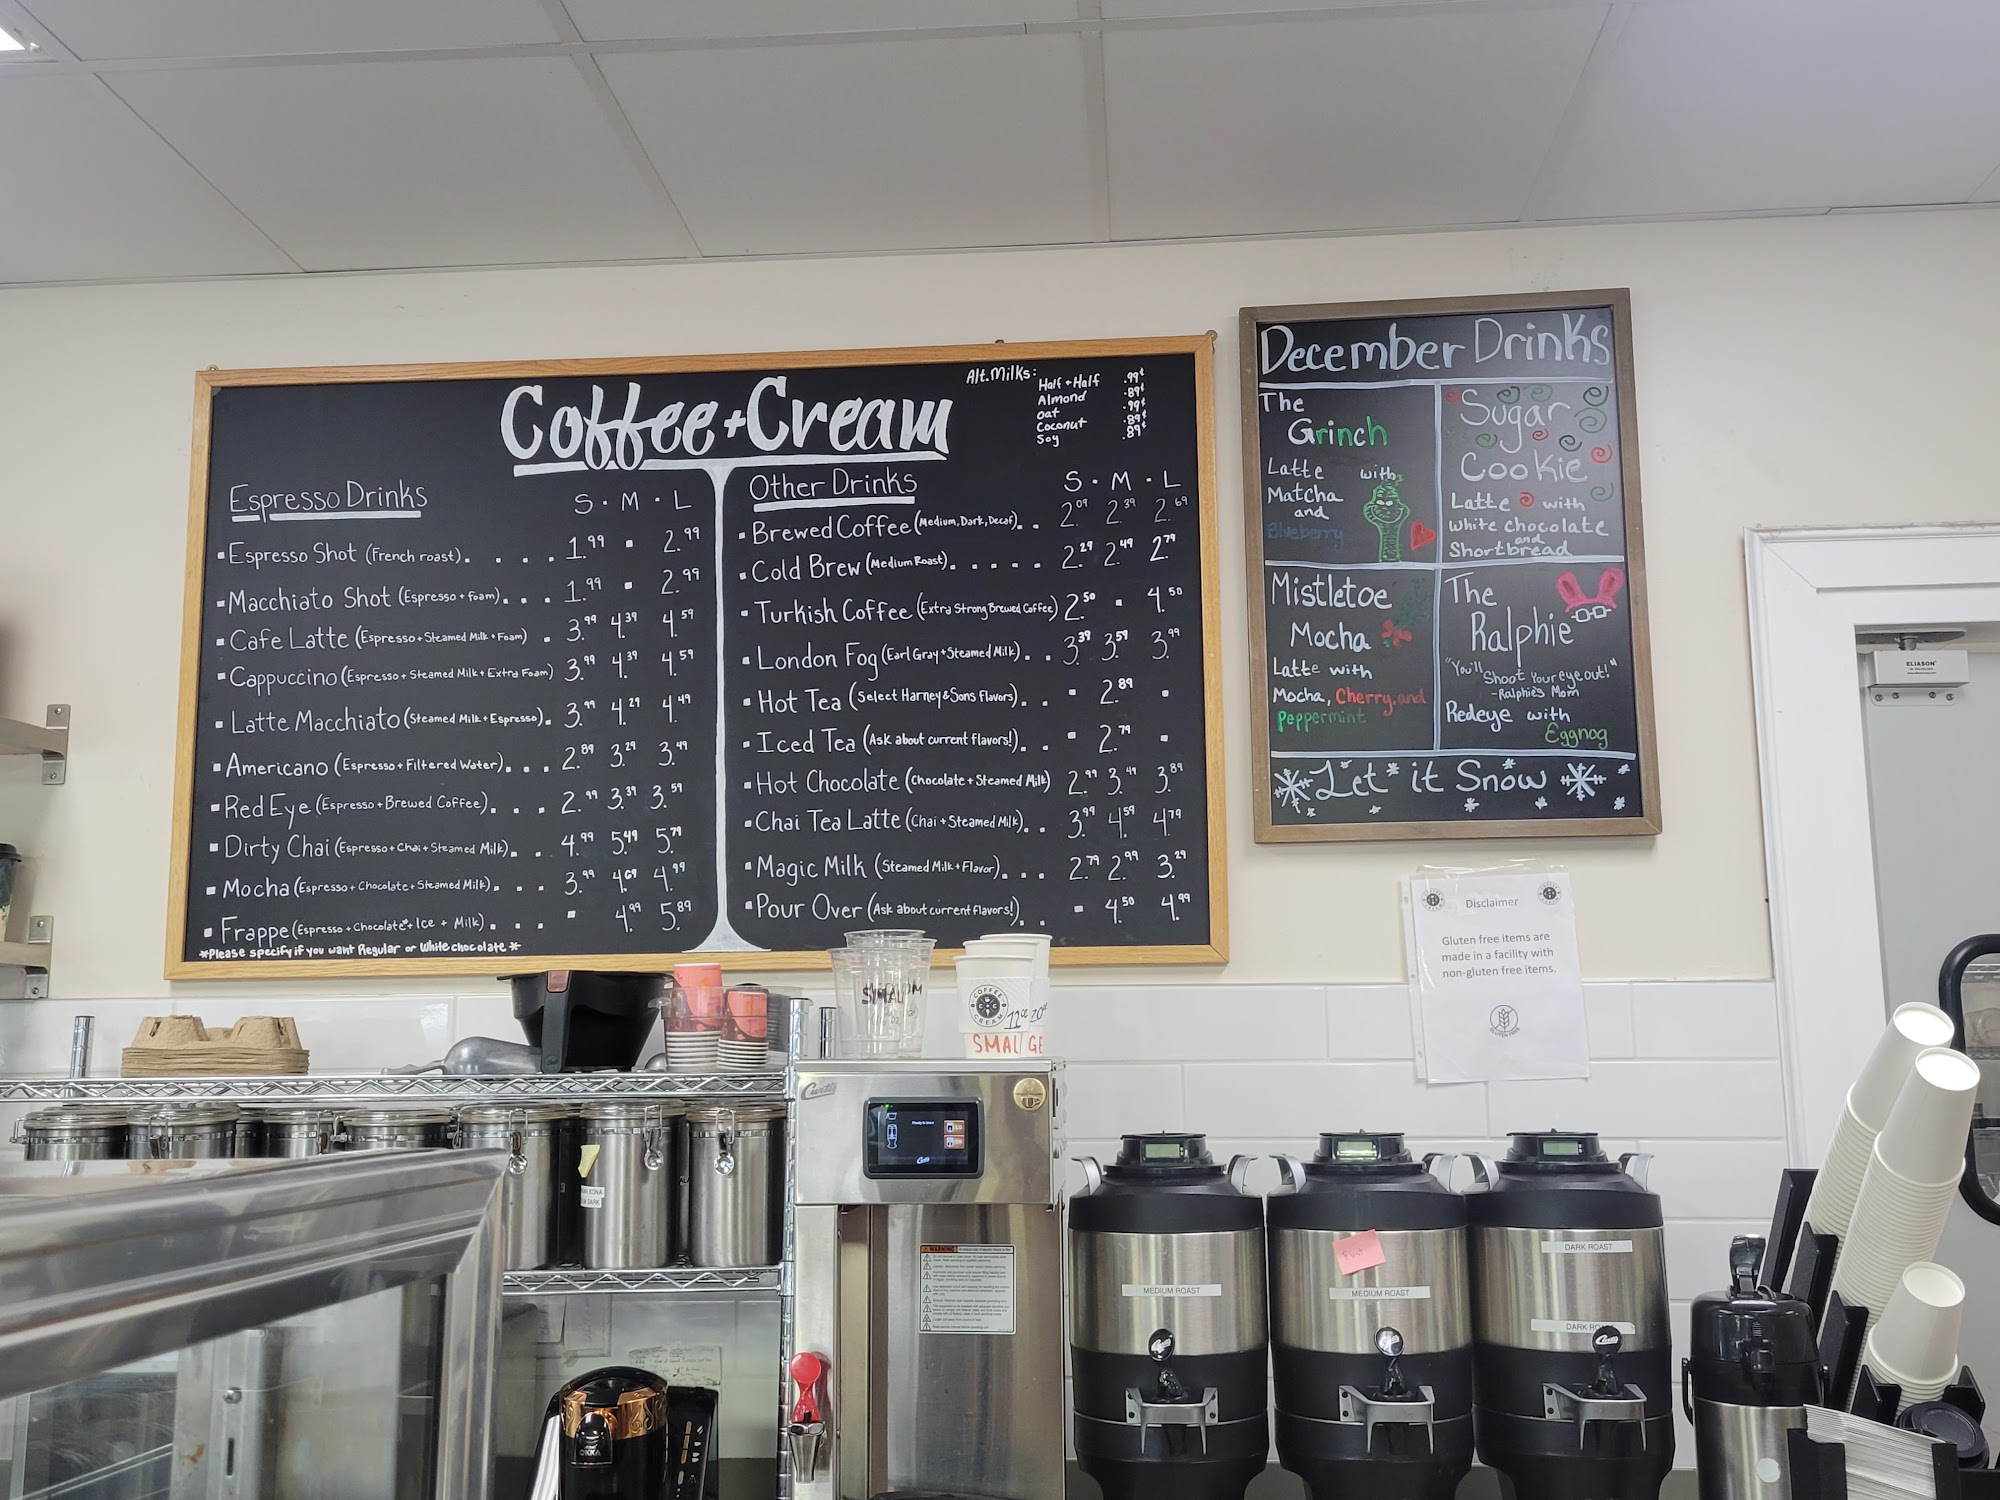 Coffee + Cream
Alt. Milks:
Half + Half .99¢
Almond .89¢
Oat .99¢
Coconut .89¢
Soy .89¢
Espresso Drinks S · M · L
Espresso Shot (French roast). . . . . 1.99 - 2.99
Macchiato Shot (Espresso + foam). . . . 1.99 - 2.99
Cafe Latte (Espresso + Steamed Milk + Foam) . 3.99 4.39 4.59
Cappuccino (Espresso + Steamed Milk + Extra Foam) 3.99 4.39 4.59
Latte Macchiato (Steamed Milk + Espresso). 3.99 4.29 4.49
Americano (Espresso + Filtered Water). . . . 2.89 3.29 3.49
Red Eye (Espresso + Brewed Coffee). . . . 2.99 3.39 3.59
Dirty Chai (Espresso + Chai + Steamed Milk). . 4.99 5.49 5.79
Mocha (Espresso + Chocolate + Steamed Milk). . . 3.99 4.69 4.99
Frappe (Espresso + Chocolate* + Ice + Milk) . . . - 4.99 5.89
*Please specify if you want Regular or White chocolate *
Other Drinks S · M · L
Brewed Coffee (Medium, Dark, Decaf). . 2.09 2.39 2.69
Cold Brew (Medium Roast). . . . . 2.29 2.49 2.79
Turkish Coffee (Extra Strong Brewed Coffee) 2.50 - 4.50
London Fog (Earl Gray + Steamed Milk). . 3.39 3.59 3.99
Hot Tea (Select Harney & Sons flavors). . - 2.89 -
Iced Tea (Ask about current flavors!). . - 2.79 -
Hot Chocolate (Chocolate + Steamed Milk) 2.99 3.49 3.89
Chai Tea Latte (Chai + Steamed Milk). . 3.99 4.59 4.79
Magic Milk (Steamed Milk + Flavor). . . 2.79 2.99 3.29
Pour Over (Ask about current flavors!). . - 4.50 4.99
December Drinks
The
Grinch
Latte with
Matcha
and
Blueberry
Sugar
Cookie
Latte with
White chocolate
and
Shortbread
Mistletoe
Mocha
Latte with
Mocha, Cherry, and
Peppermint
The
Ralphie
"You'll Shoot Your eye out!"
-Ralphie's Mom
Redeye with
Eggnog
Let it Snow
ELIASON
Disclaimer
Gluten free items are
made in a facility with
non-gluten free items.
GLUTEN FREE
COFFEE
CREAM
12oz 20oz
SMAL GE
SMAL
Curtis
WARNING
KONA
DARK
MEDIUM ROAST
MEDIUM ROAST
DARK ROAST
DARK RO
OKKA